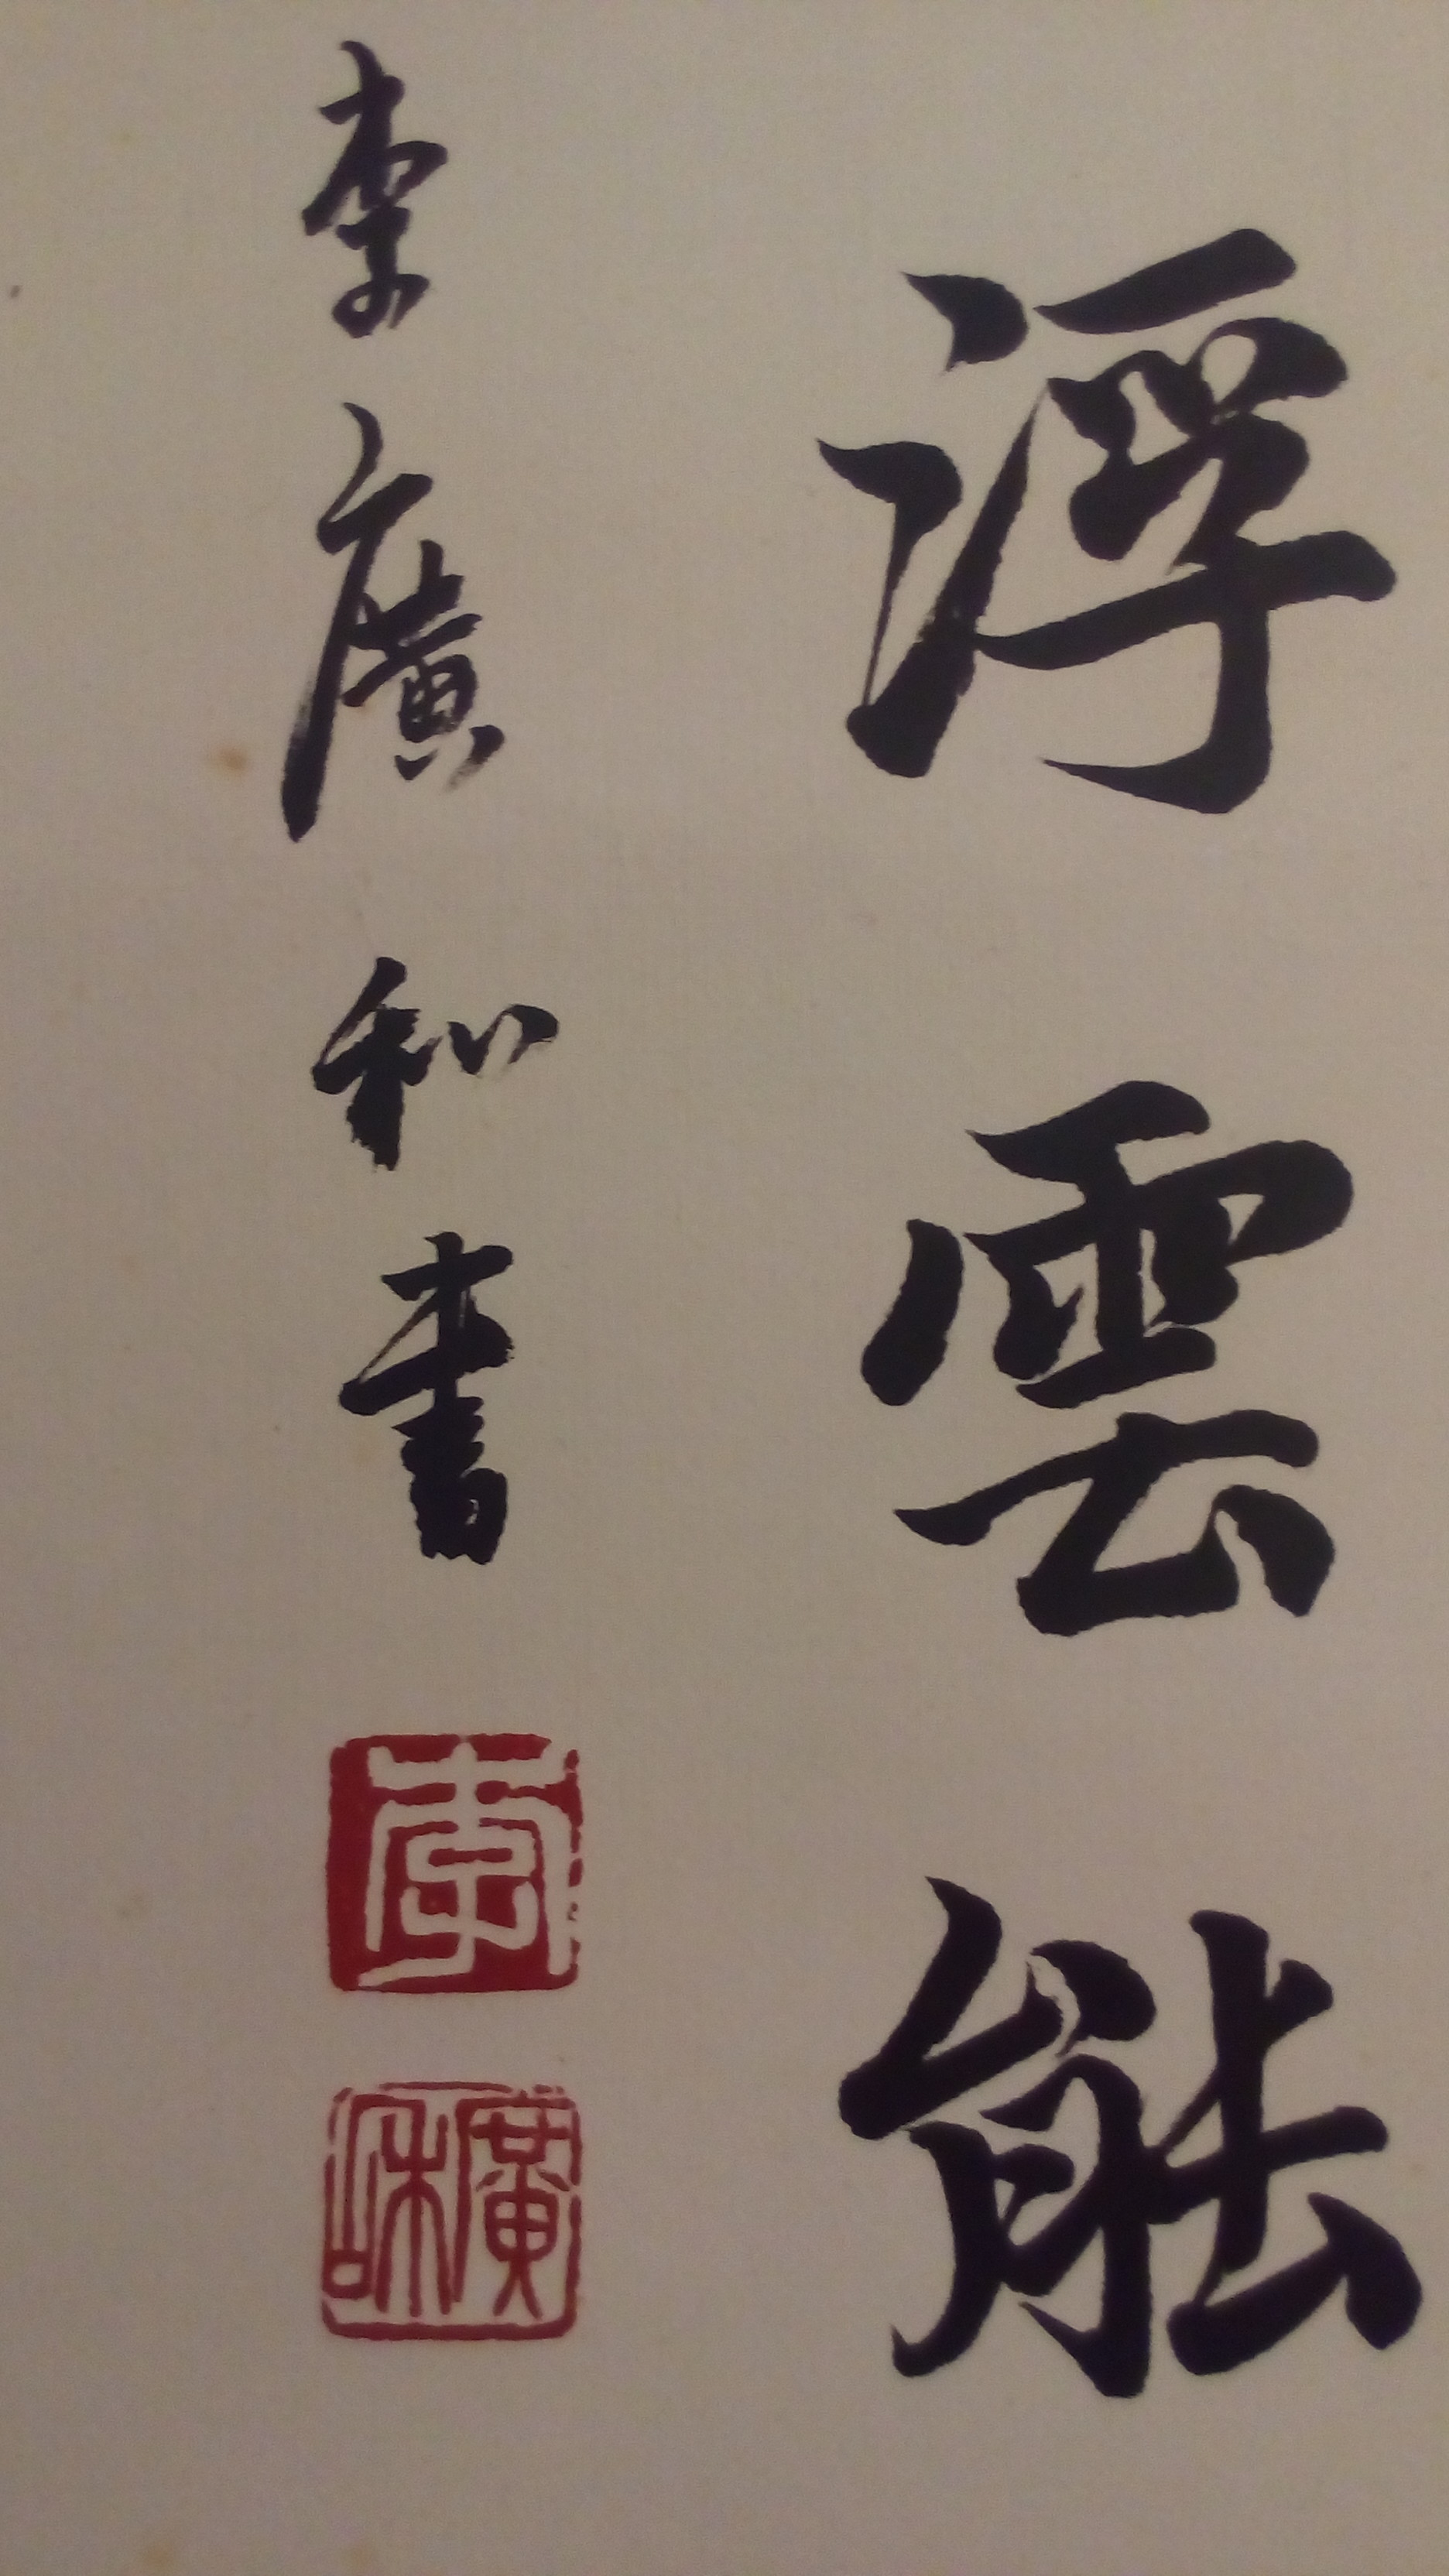 浮雲能
李廣和書
李
廣和